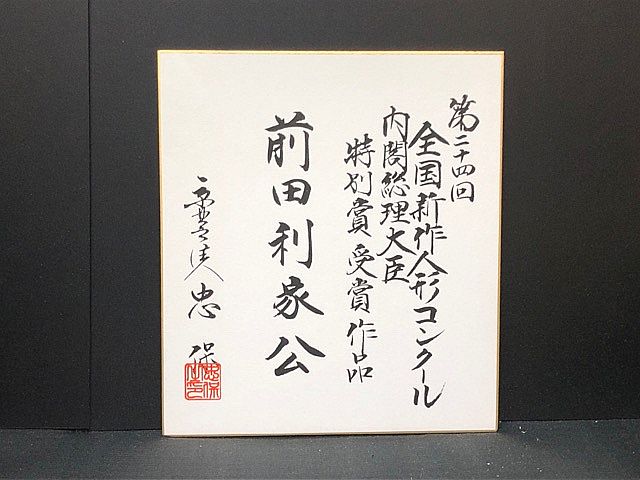 第二十四回
全国新作人形コンクール
内閣総理大臣
特別賞受賞作品
前田利家公
忠保